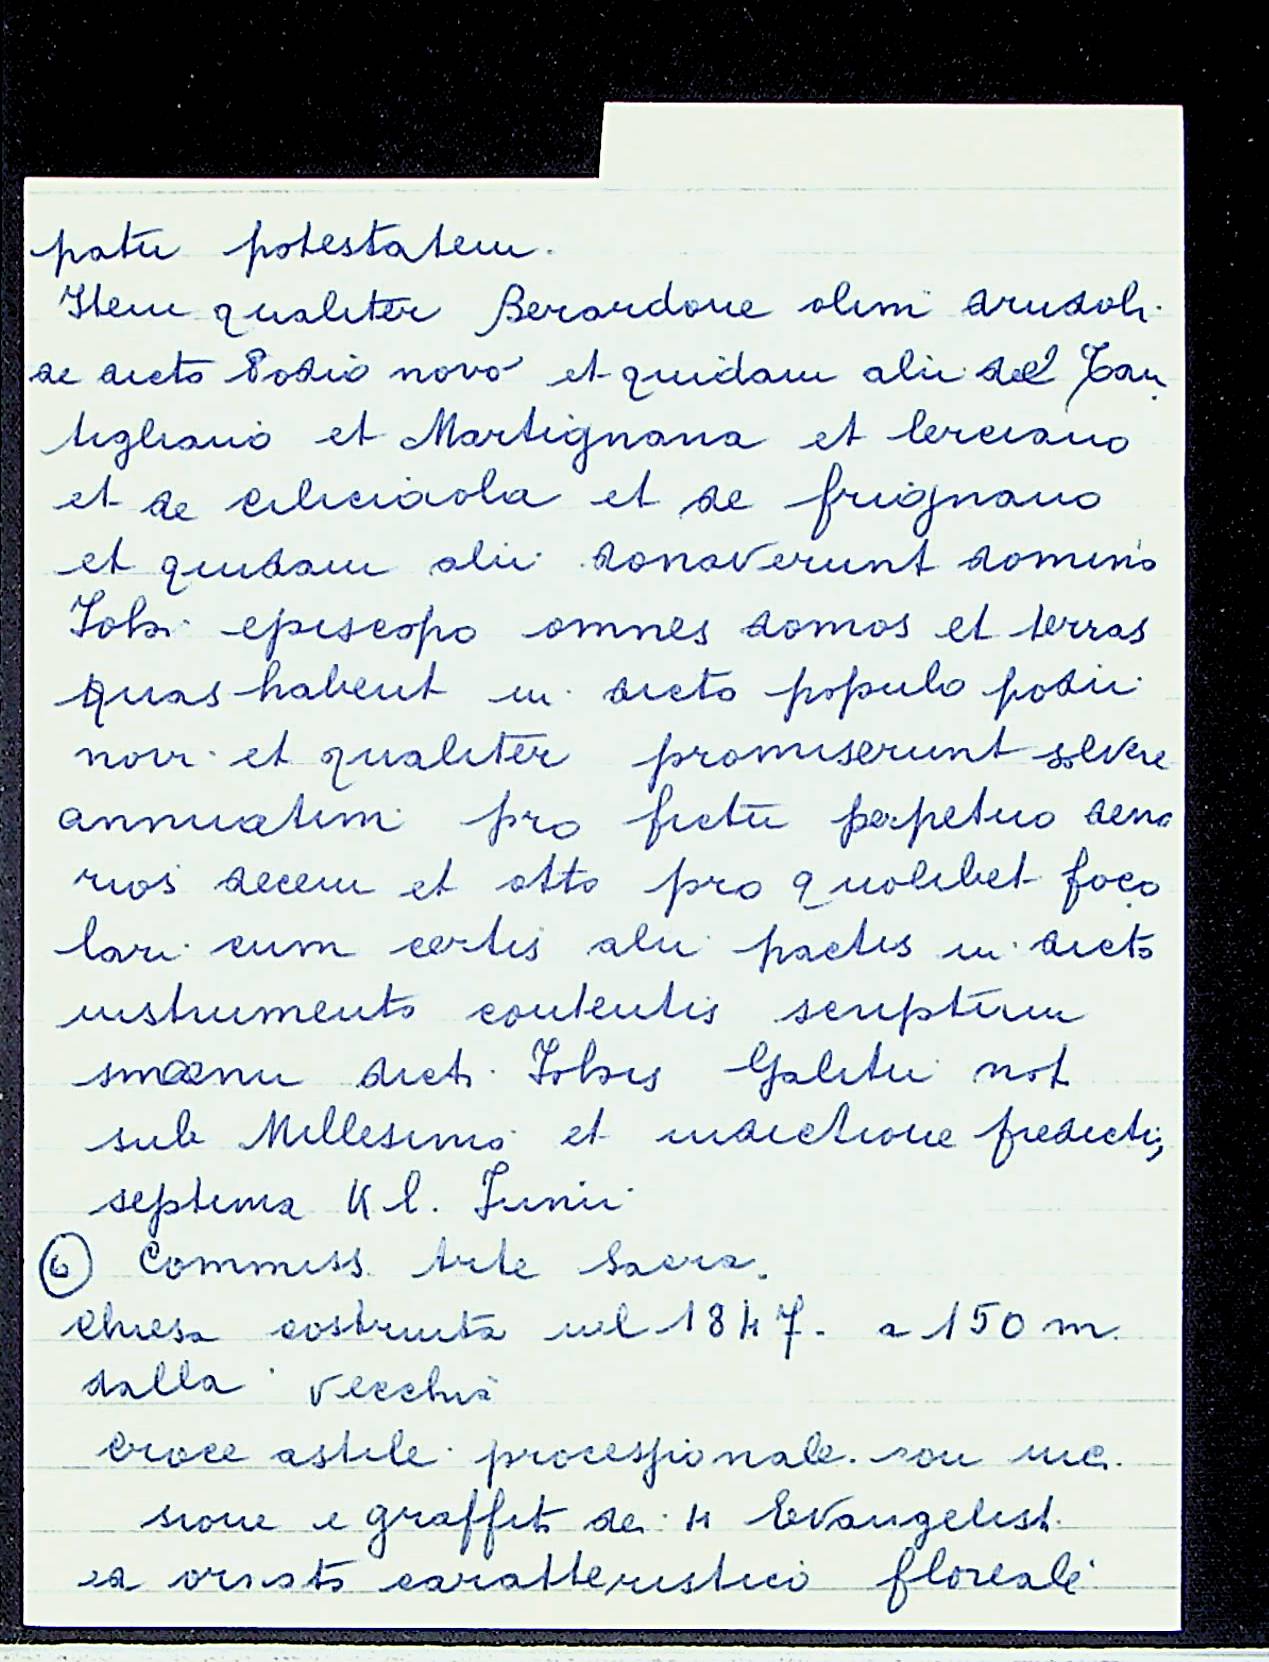 patu potestatem.
Item qualiter Berardone olim
de dicto Podio novo et quidam alii del
tigliano et Martignana et
et de et de frignano
et quidam alii donaverunt domino
Johi episcopo omnes domos et terras
quas habent in dicto populo podii
novi et qualiter promiserunt solvere
annuatim pro fictu perpetuo dena
rios decem et otto pro quolibet foco
lari cum certis alii pactis in dicto
instrumento contentis scriptum
manu dicti Johis Galitii not
sub Millesimo et indictione predicti,
septima Kl. Junii
⑥ Commiss. Arte Sacra.
Chiesa costruita nel 1847. a 150 m.
dalla vecchia
Croce astile processionale. con inci
sione e graffiti dei 4 Evangelisti
ed ornato caratteristico floreale